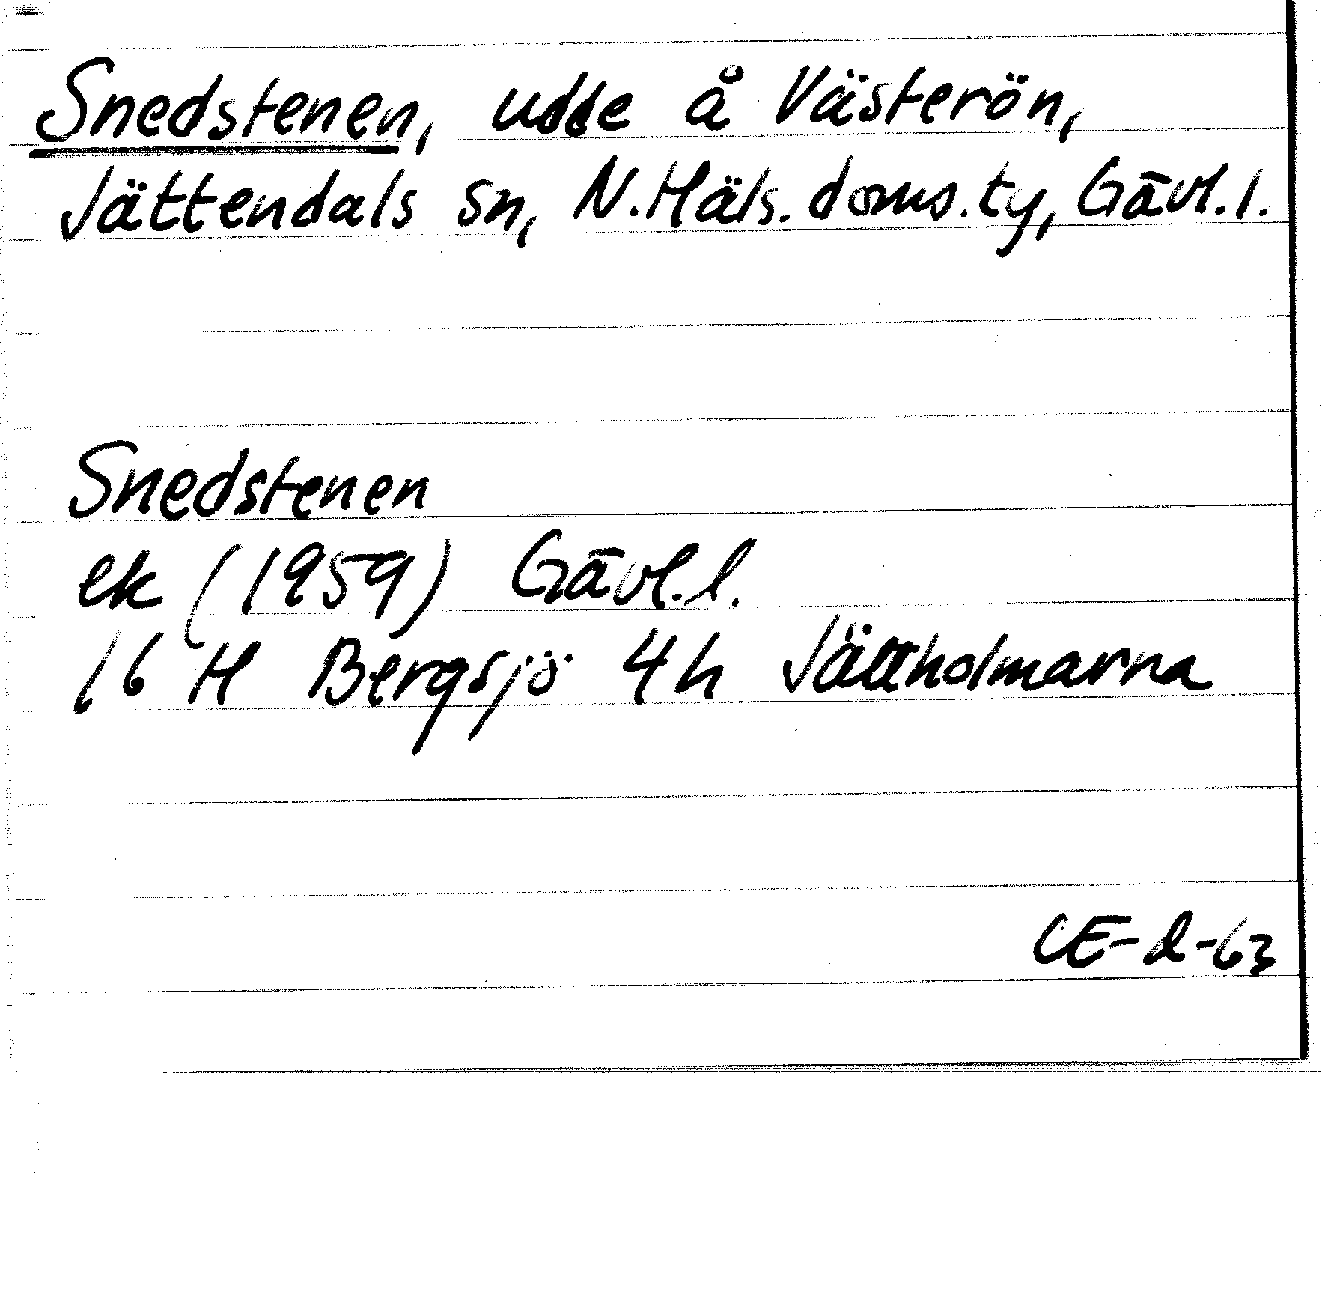 Snedstenen, udde å Västerön,
Jättendals sn, N.Häls.doms.ty, Gävl.l.
Snedstenen
ek (1959) Gävl.l.
16 H Bergsjö 4h Jättholmarna
CE-d-63